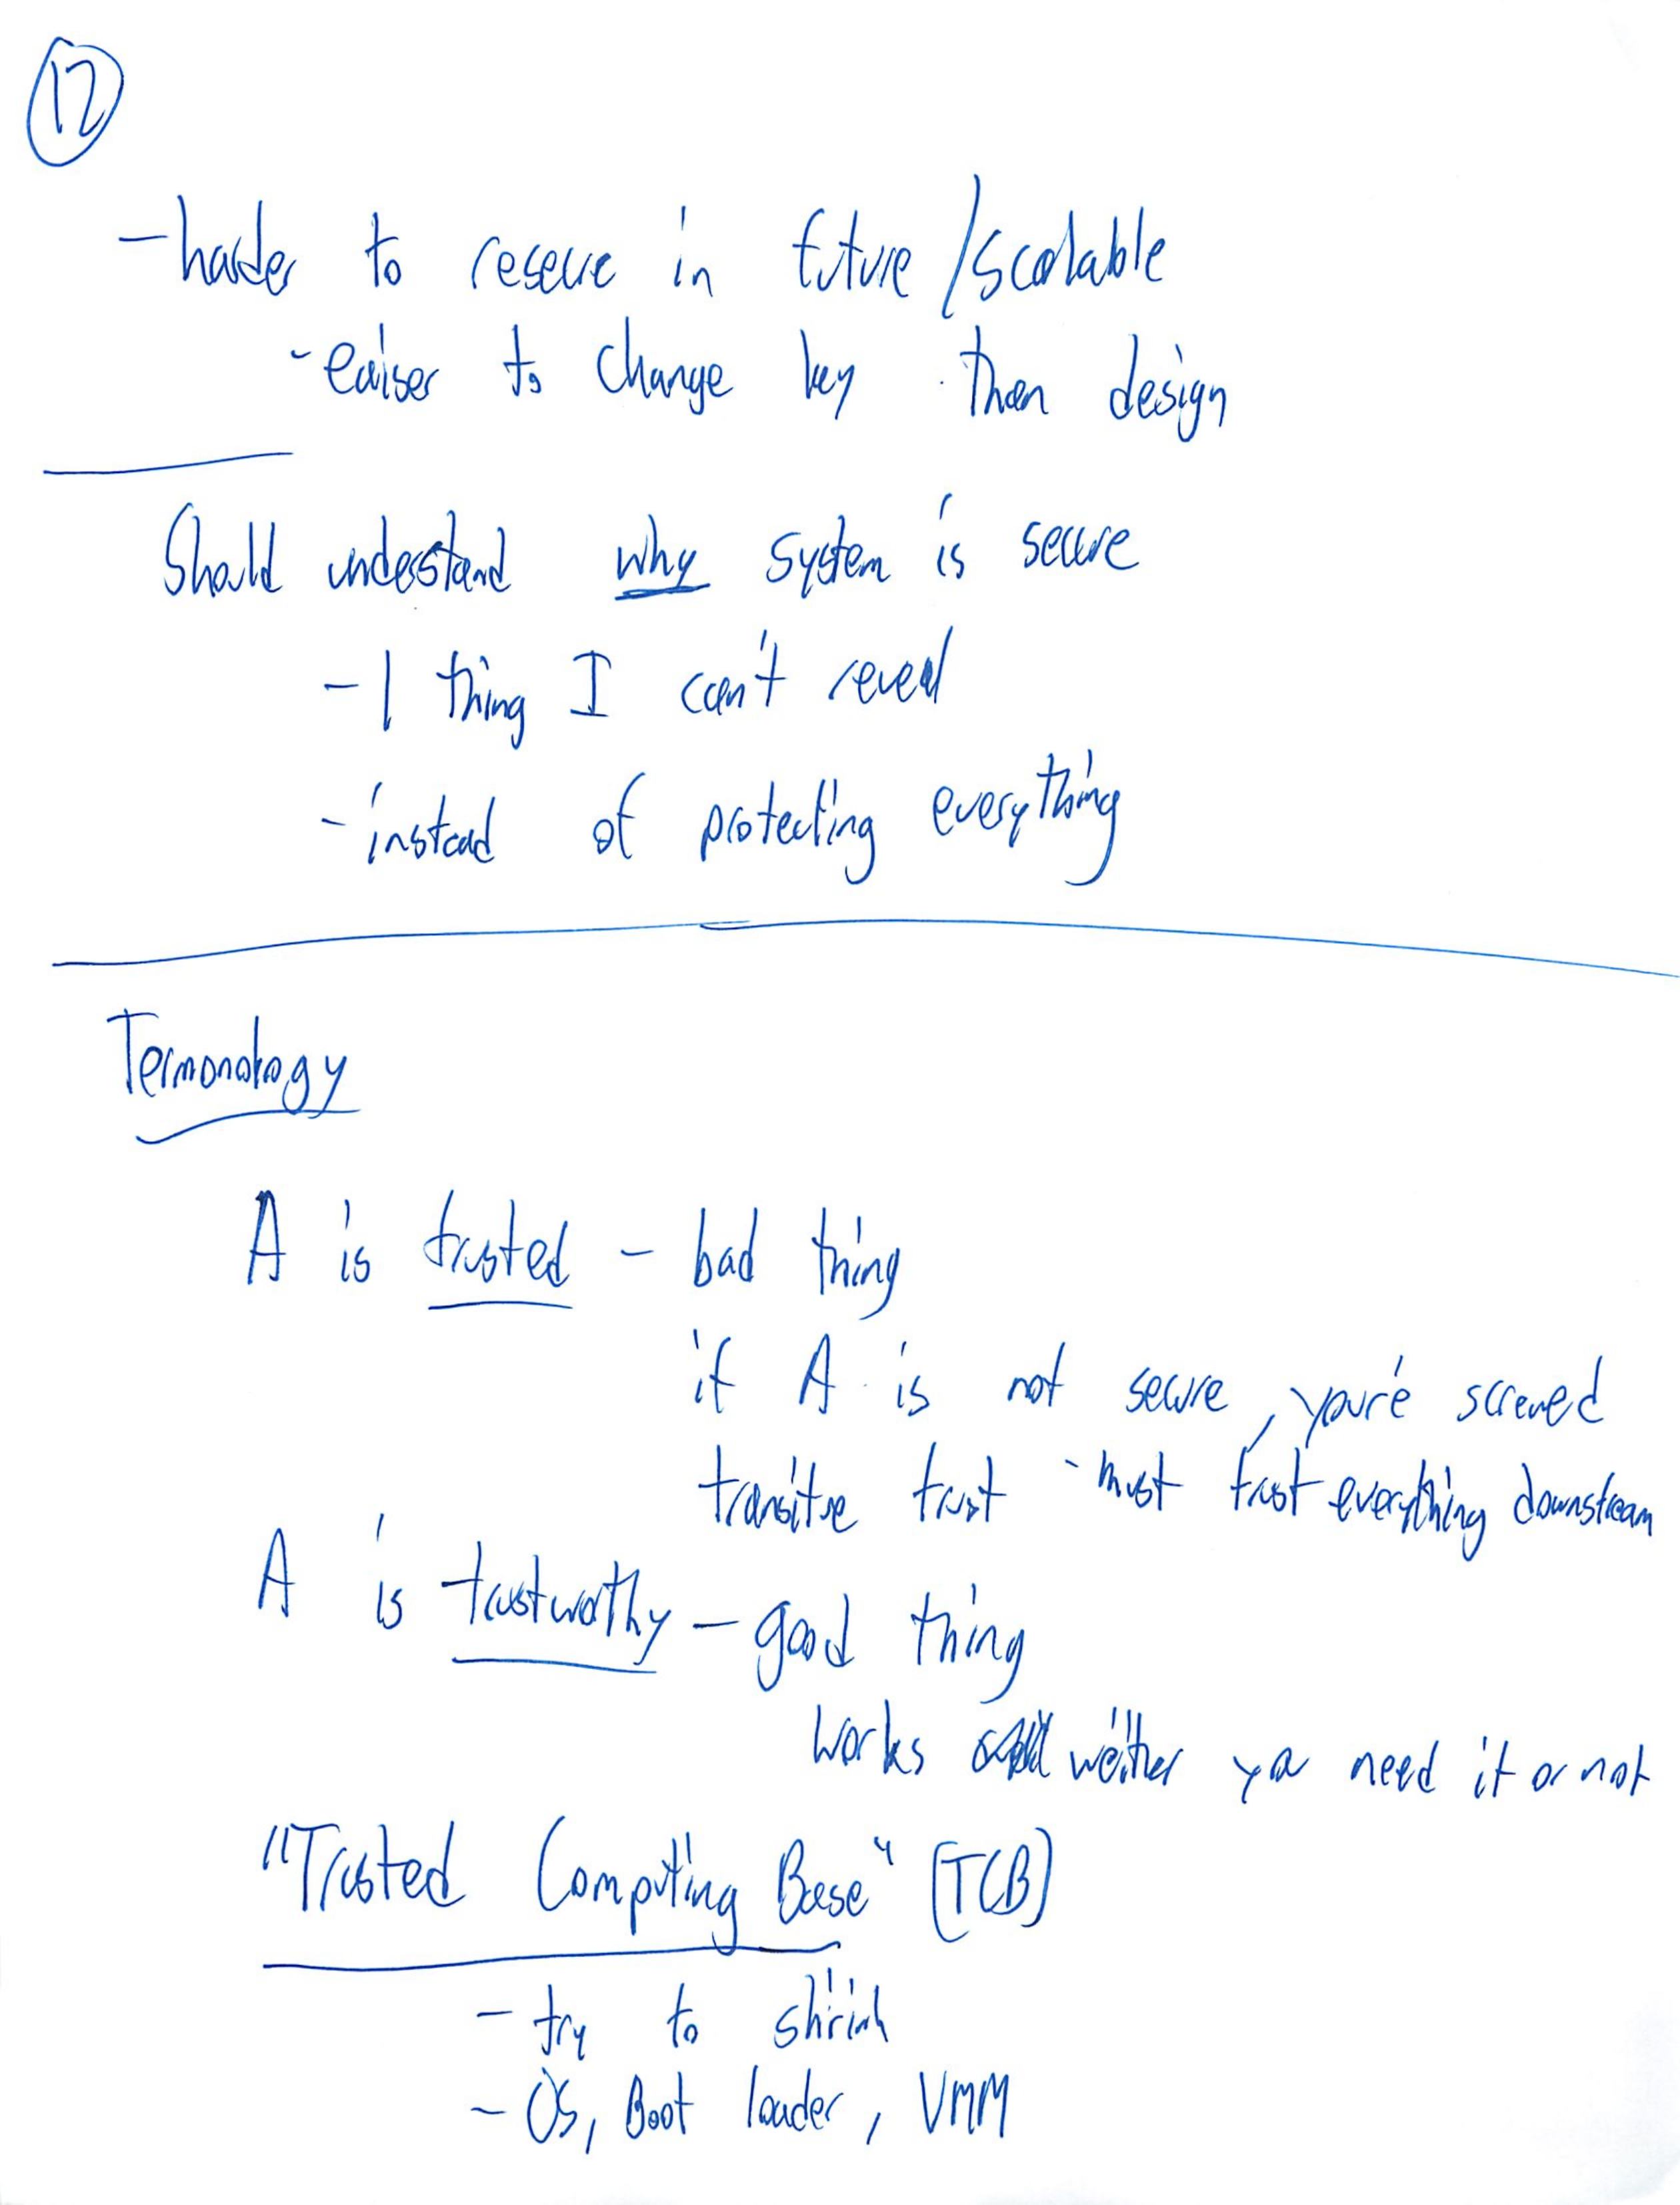 12
- harder to resecure in future / scalable
- eaiser to change key than design
Should understand why system is secure
- 1 thing I can't reveal
- instead of protecting everything
Termonology
A is trusted - bad thing
if A is not secure, you're screwed
transitve trust - must trust everything downstream
A is trustworthy - good thing
works weither you need it or not
"Trusted Computing Base" (TCB)
- try to shrink
- OS, Boot loader, VMM